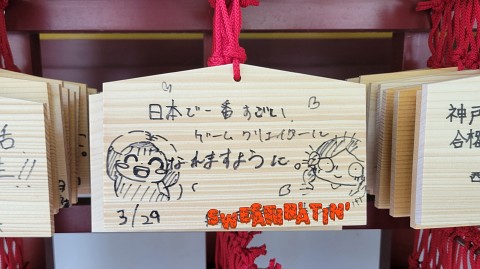 日本で一番すごい
ゲームクリエイターに
なれますように。
3/29
神戸
合格